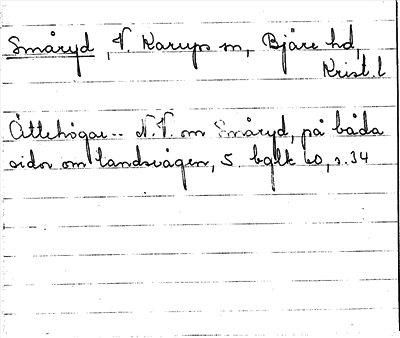 Småryd, V. Karups sn, Bjäre hd,
Krist. l
Ättehögar -- N.V. om Småryd, på båda
sidor om landsvägen, S. bglk 60, s. 34